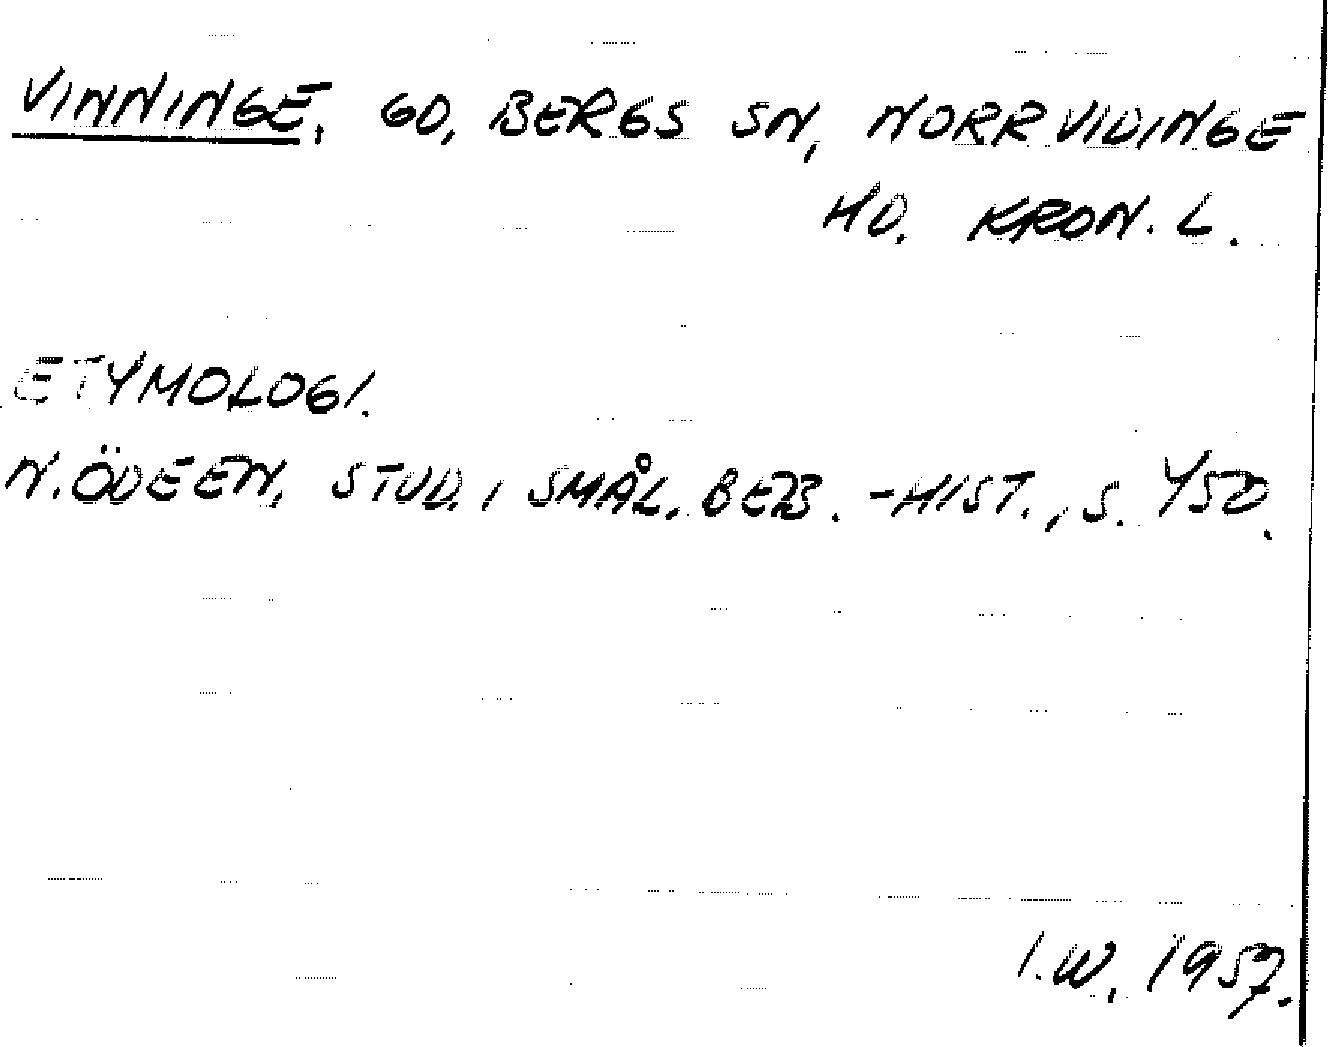 VINNINGE, GD, BERGS SN, NORRVIDINGE
HD. KRON. L.
ETYMOLOGI.
N. ÖDEEN, STUD. I SMÅL. BEB. -HIST., S. 450.
I.W. 1957.